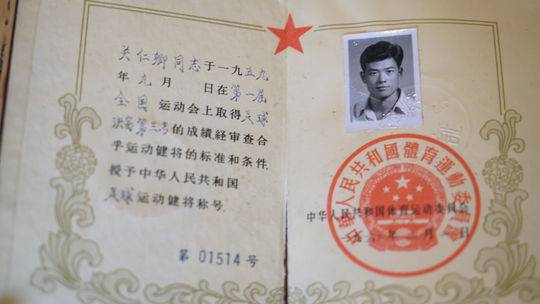 关仁卿同志于一九五九
年九月 日在第一届
全国运动会上取得足球
决赛第三名的成绩经审查合
乎运动健将的标准和条件.
授予中华人民共和国
足球运动健将称号.
第 01514 号
中华人民共和國體育運動委員會
中华人民共和国体育运动委员会
月 日